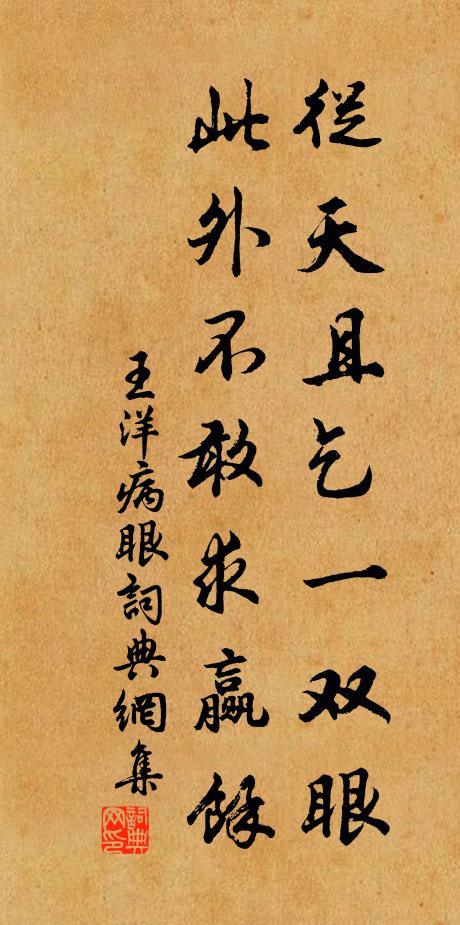 從天且乞一双眼
此外不敢求贏餘
王洋病眼詞典網集
詞典网印